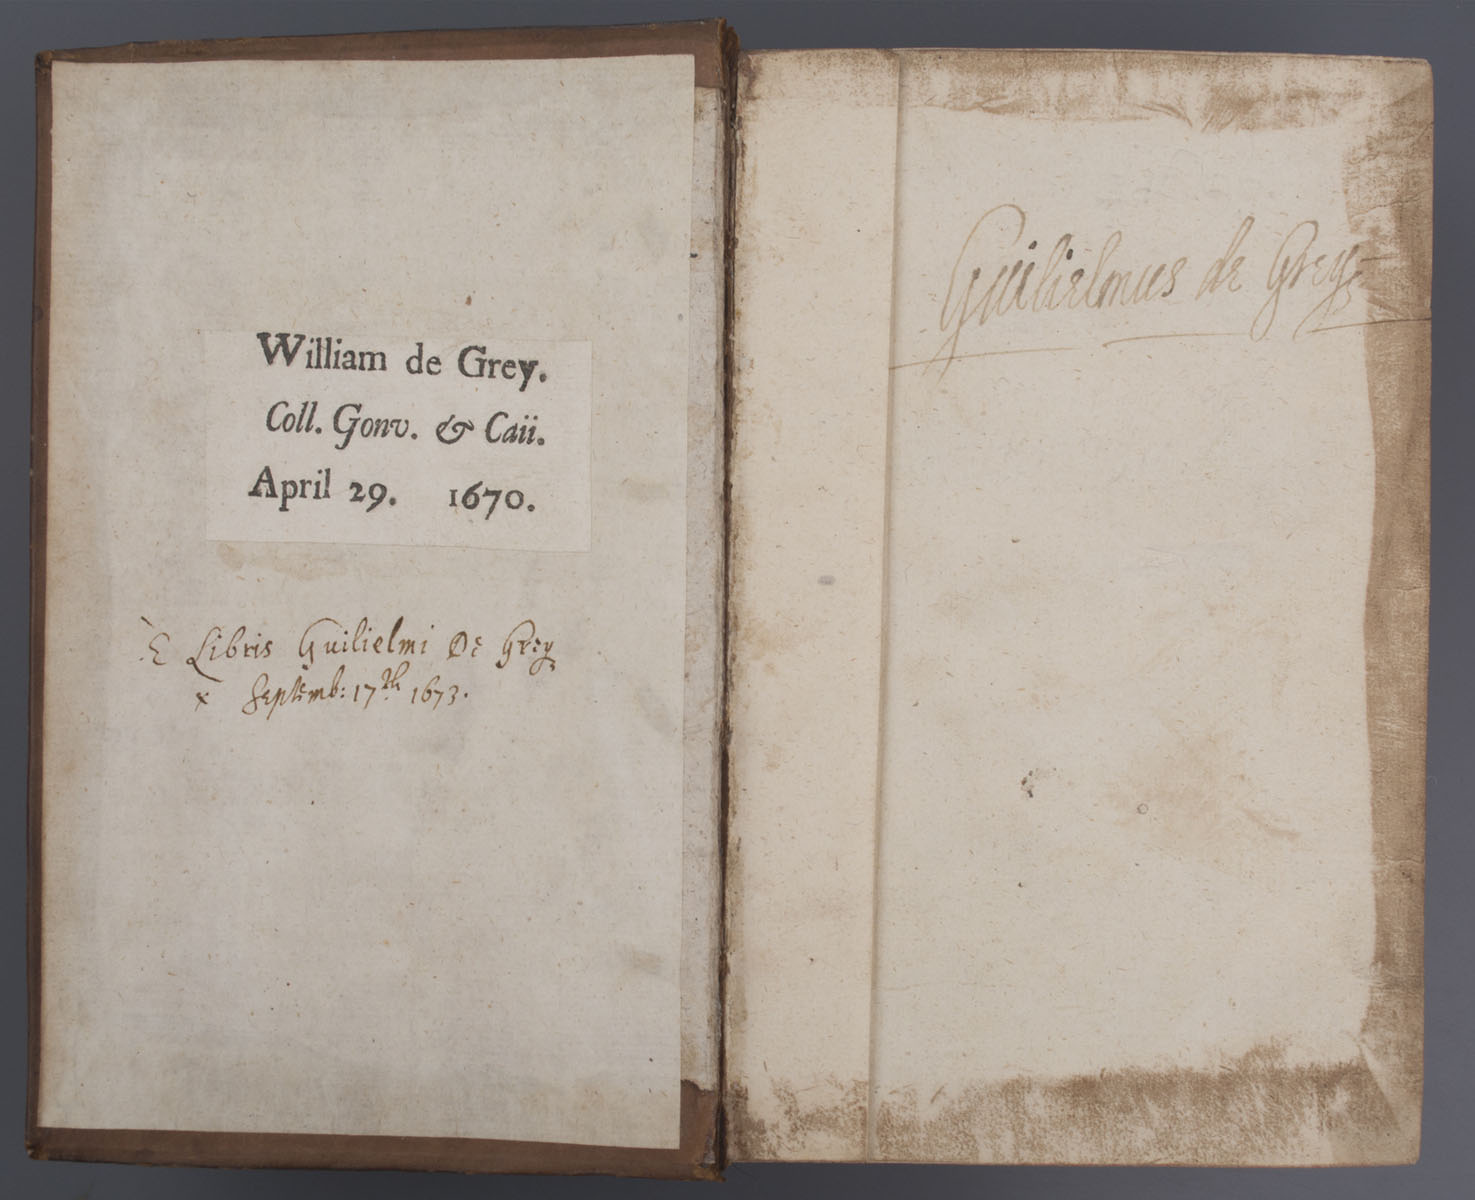 William de Grey.
Coll. Gonv. & Caii.
April 29. 1670.
È Libris Guilielmi De Grey
x Septemb: 17th 1673.
Guilielmus de Grey